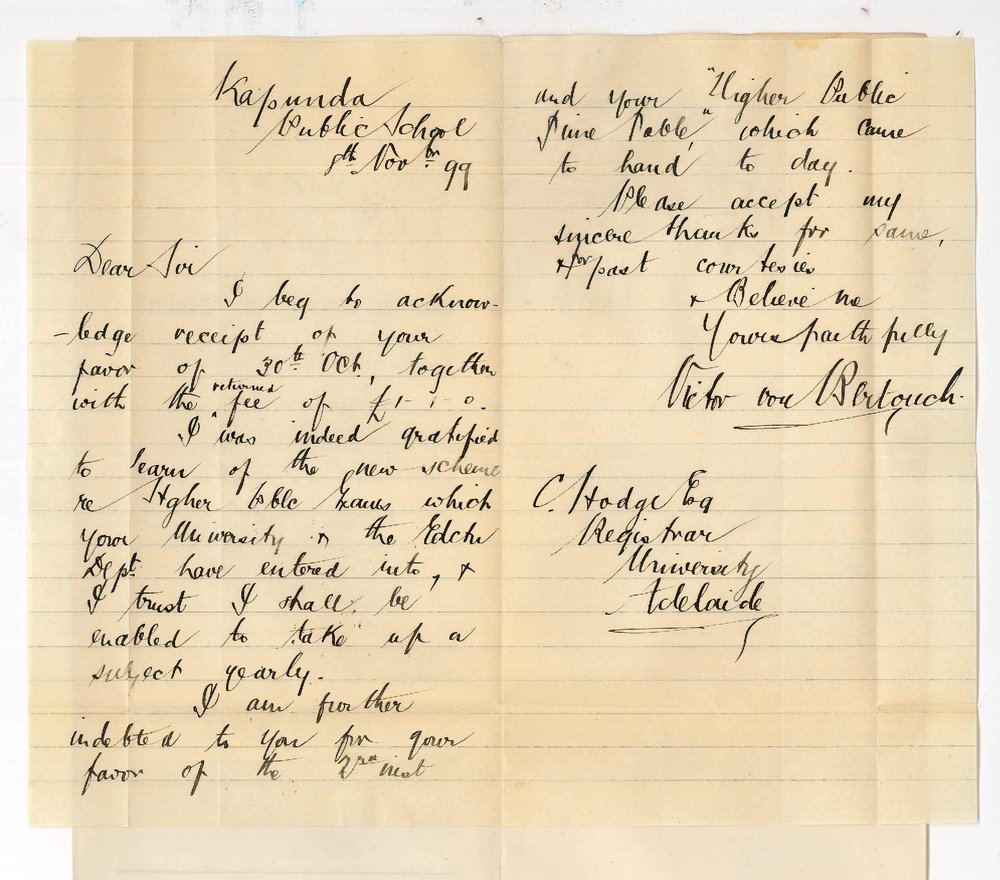 Kapunda
Public School
8th Novbr 99
Dear Sir
I beg to acknow-
-ledge receipt of your
favor of 30th Oct, together
with the returned fee of £1-1-0.
I was indeed gratified
to learn of the new scheme
re Hgher Pblc Exams which
your University & the Edctn
Dept. have entered into, &
I trust I shall be
enabled to "take" up a
subject yearly.
I am further
indebted to you for your
favor of the 2nd inst
and your "Higher Public
Time Table," which came
to hand to day.
Please accept my
sincere thanks for same,
& for past courtesies
& Believe me
Yours faithfully
Victor von Bertouch.
C. Hodge Esq
Registrar
University
Adelaide